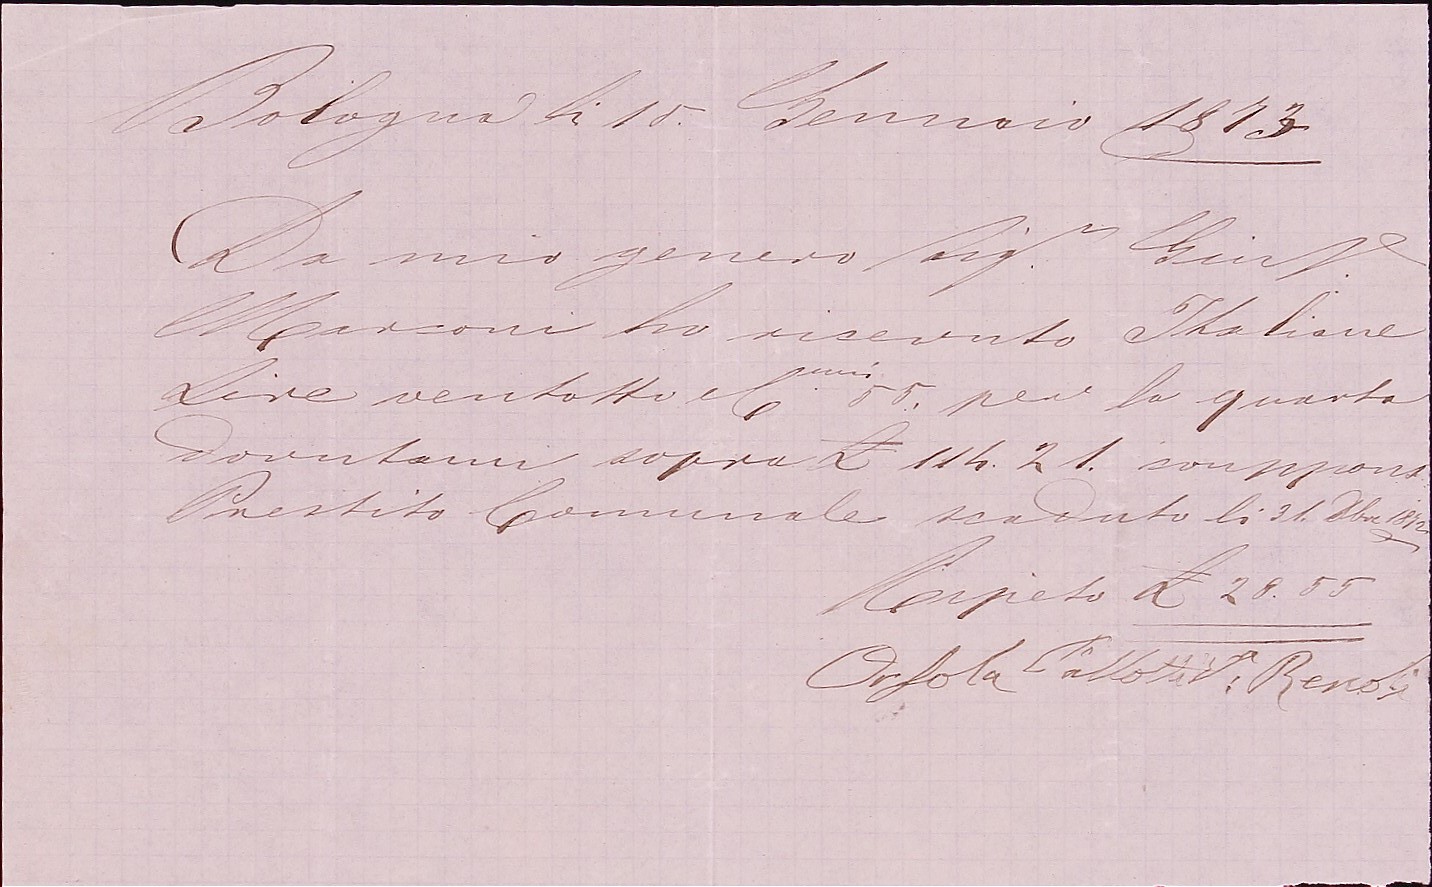 Bologna li 15. Gennaio 1873
Da mio genero Sig.r Giu.
Marconi ho ricevuto Ittaliane
Lire ventotto e C 55. per la quarta
dovutami sopra £ 114. 21. couppons
Prestito Comunale scaduto li 31. Dbre 1872
Ripeto £ 28. 55
Orsola Pallotti V.a Renoli